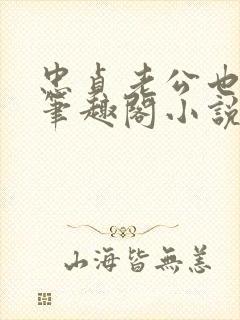 忠貞老公也
筆趣閣小說
山海皆無恙